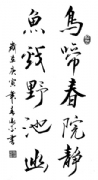 鳥啼春院靜
魚戏野池幽
歲在庚寅
書